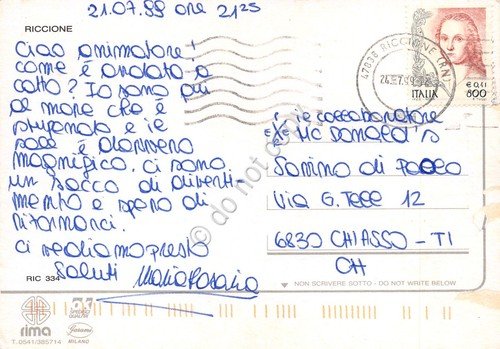 21.07.99 ore 21²⁵
RICCIONE
Ciao animatore!
come è andato a
cotto? Io sono qui
al mare che è
stupendo e il
sole è davvero
magnifico. ci sono
un sacco di diverti-
mento e spero di
ritornarci.
ci vediamo presto
Saluti Maria Rosaria
RIC 334
47838 RICCIONE (RN)
24.7.99
€ 0,41
800
ITALIA
collaboratore
Mc Donald's
Sonino di
Via G. 12
6830 CHIASSO - TI
CH
NON SCRIVERE SOTTO - DO NOT WRITE BELOW
do not copy
rima
T. 0541/385714
MILANO